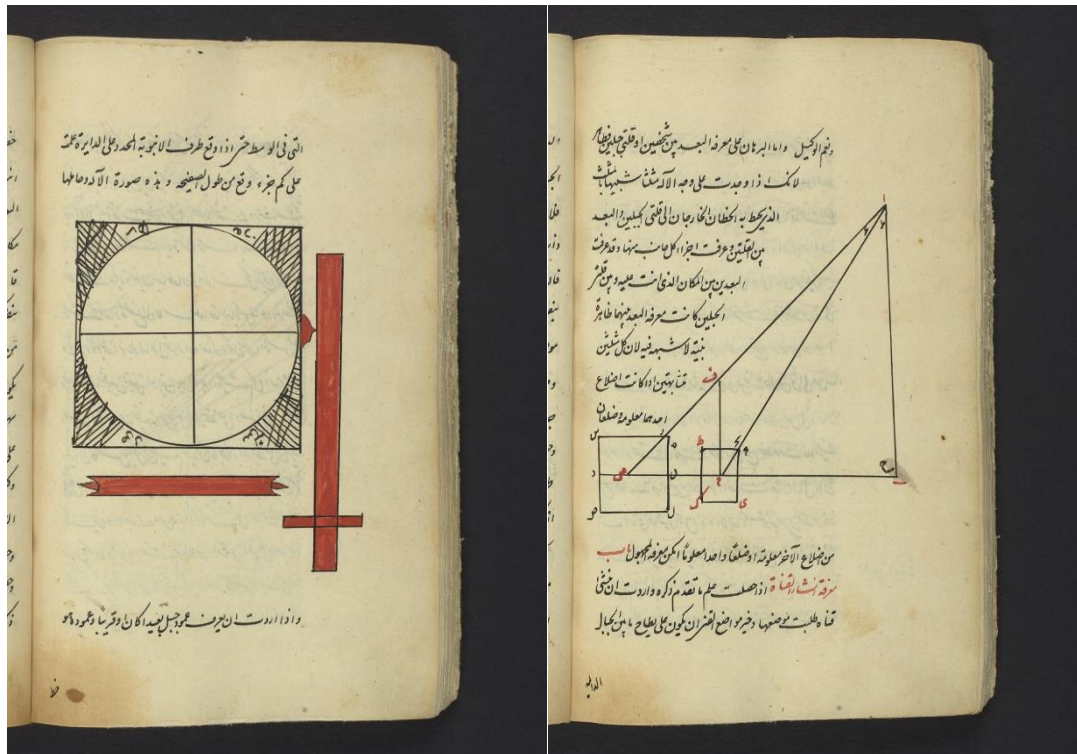 التى فى الوسط حتى اذا وقع طرف الانبوبة المحدد على الدايرة علمت
على كم جزء وقع من طول الصفيحه وهذه صورة الآلة وحاملها
واذا اردت ان تعرف عمود جبل بعيدا كان او قريبا وعموده هو
خط
ونعم الوكيل واما البرهان على معرفة البعد بين شخصين او قلتى جبلين فظاهر
لانك اذا وجدت على وجه الآلة مثلثا شبيها بالمثلث
الذى يحيط به الخطان الخارجان الى قلتى الجبلين والبعد
بين القلتين وعرفت اجزاء كل جانب منها وقد عرفت
البعدين بين المكان الذى انت عليه وبين قلتى
الجبلين كانت معرفة البعد بينهما ظاهرة
بينة لا شبهه فيه لان كل مثلثين
متشابهتين اذا كانت اضلاع
احدهما معلومة وضلعان
من اضلاع الآخر معلومة او ضلعا واحدا معلوما امكن معرفة المجهول باب
معرفة انشاء القناة اذا حصلت علم ما تقدم ذكره واردت ان تنشئ
قناه طلبت موضعها وخير مواضع القنى ان يكون على بطاح ما بين الجبال